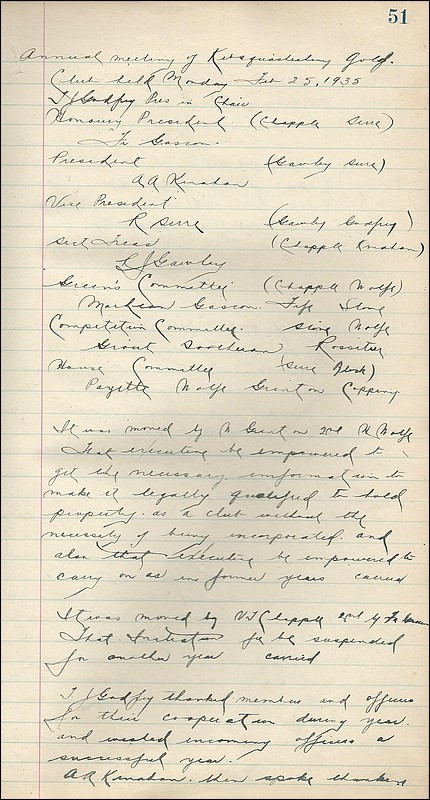 51
Annual meeting of Golf.
Club held Monday Feb 25, 1935
T J Godfrey Pres in Chair
Honoury President (Chapple Serre)
Fr Gascon.
President (Gawley Serre)
A A Kinahan
Vice President
R Serre (Gawley Godfrey)
Sect Treas (Chapple Kinahan)
L J Gawley
Green's Committee (Chapple Wolfe)
Gascon. Taft Stone
Competition Committee. Serre Wolfe
Grout Rossiter
House Committee (Serre
Payette Wolfe Copping
It was moved by N 2nd N Wolfe
That executive be empowered to
get the necessary information to
make it legally qualified to hold
property. as a club without the
necessity of being incorporated. and
also that executive be empowered to
carry on as in former years carried
It was moved by V J Chapple 2nd by Fr
That Initiation fee be suspended
for another year carried
T J Godfrey thanked members and officers
for their cooperation during year.
and wished incoming officers a
successful year.
A A Kinahan. then spoke